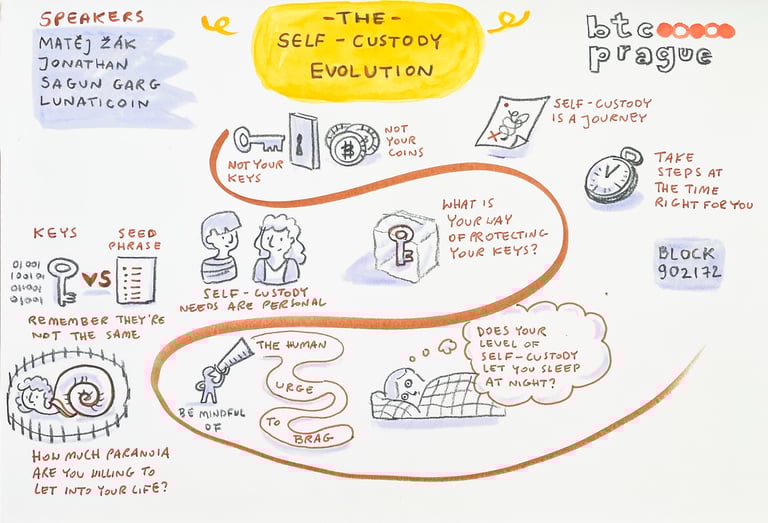 SPEAKERS
MATĚJ ŽÁK
JONATHAN
SAGUN GARG
LUNATICOIN
-THE-
SELF-CUSTODY
EVOLUTION
btc
prague
NOT YOUR
KEYS
NOT
YOUR
COINS
SELF-CUSTODY
IS A JOURNEY
TAKE
STEPS AT
THE TIME
RIGHT FOR YOU
BLOCK
902172
WHAT IS
YOUR WAY
OF PROTECTING
YOUR KEYS?
SELF-CUSTODY
NEEDS ARE PERSONAL
KEYS
SEED
PHRASE
VS
REMEMBER THEY'RE
NOT THE SAME
HOW MUCH PARANOIA
ARE YOU WILLING TO
LET INTO YOUR LIFE?
BE MINDFUL
OF
THE HUMAN
URGE
TO
BRAG
DOES YOUR
LEVEL OF
SELF-CUSTODY
LET YOU SLEEP
AT NIGHT?